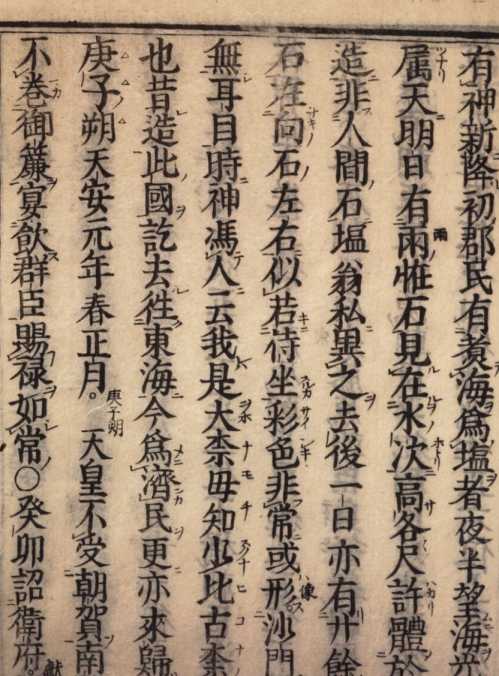 有神新降初郡民有煮海為塩者夜半望海光
属天明日有両怪石見在水次高各尺許體於
造非人間石塩翁私異之去後一日亦有廿餘
石在向石左右似若侍坐彩色非常或形沙門
無耳目時神馮人云我是大奈母知少比古奈
也昔造此國訖去徃東海今為濟民更亦來歸
庚子朔天安元年春正月。天皇不受朝賀南
不卷御簾宴飲群臣賜禄如常○癸卯詔衛府。